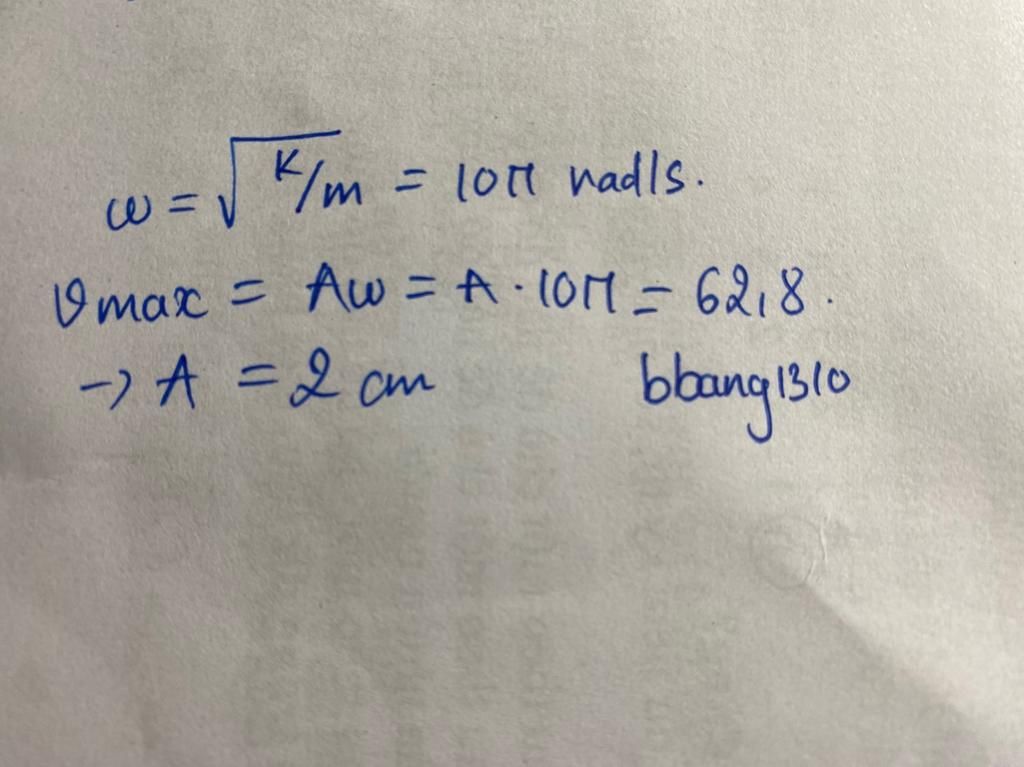 ω = √K/m = 10π rad/s.
vmax = Aω = A · 10π = 62,8.
→ A = 2 cm bbang1310